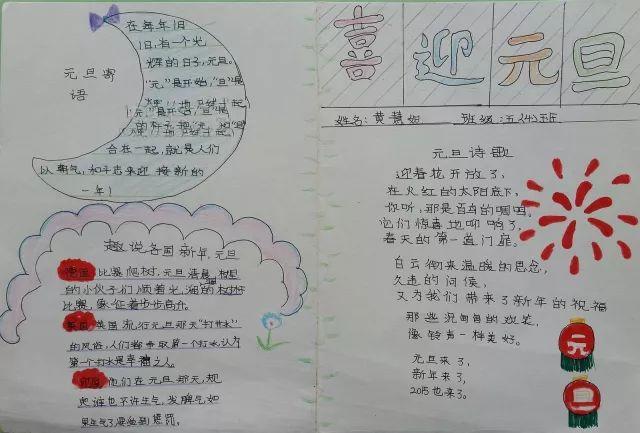 在每年1月
1日,有一个光
辉的日子,元旦。
"元"是开始,"旦"是
合在一起,就是人们
以朝气,
迎接新的
一年!
元旦寄
语
趣说各国新年,元旦
德国:比赛爬树,元旦清晨,
的小伙子们顺着光
比赛,象征着步步高升。
英国流行元旦那天"打井水"
的风俗,人们都争取第一个打水,认为
第一个打水是幸福之人。
他们在元旦那天,规
定谁也不许生气,发脾气,如
喜迎元旦
姓名:黄慧如 班级:五(4)班
元旦诗歌
迎春花开放了,
在火红的太阳底下,
你听,那是百鸟的唱唱。
它们惊喜地叩响了,
春天的第一道门扉。
白云衔来温暖的思念,
久违的问候,
又为我们带来了新年的祝福
那些沉甸甸的欢笑,
像铃声一样美好。
元旦来了,
新年来了,
2015也来了。
元
旦